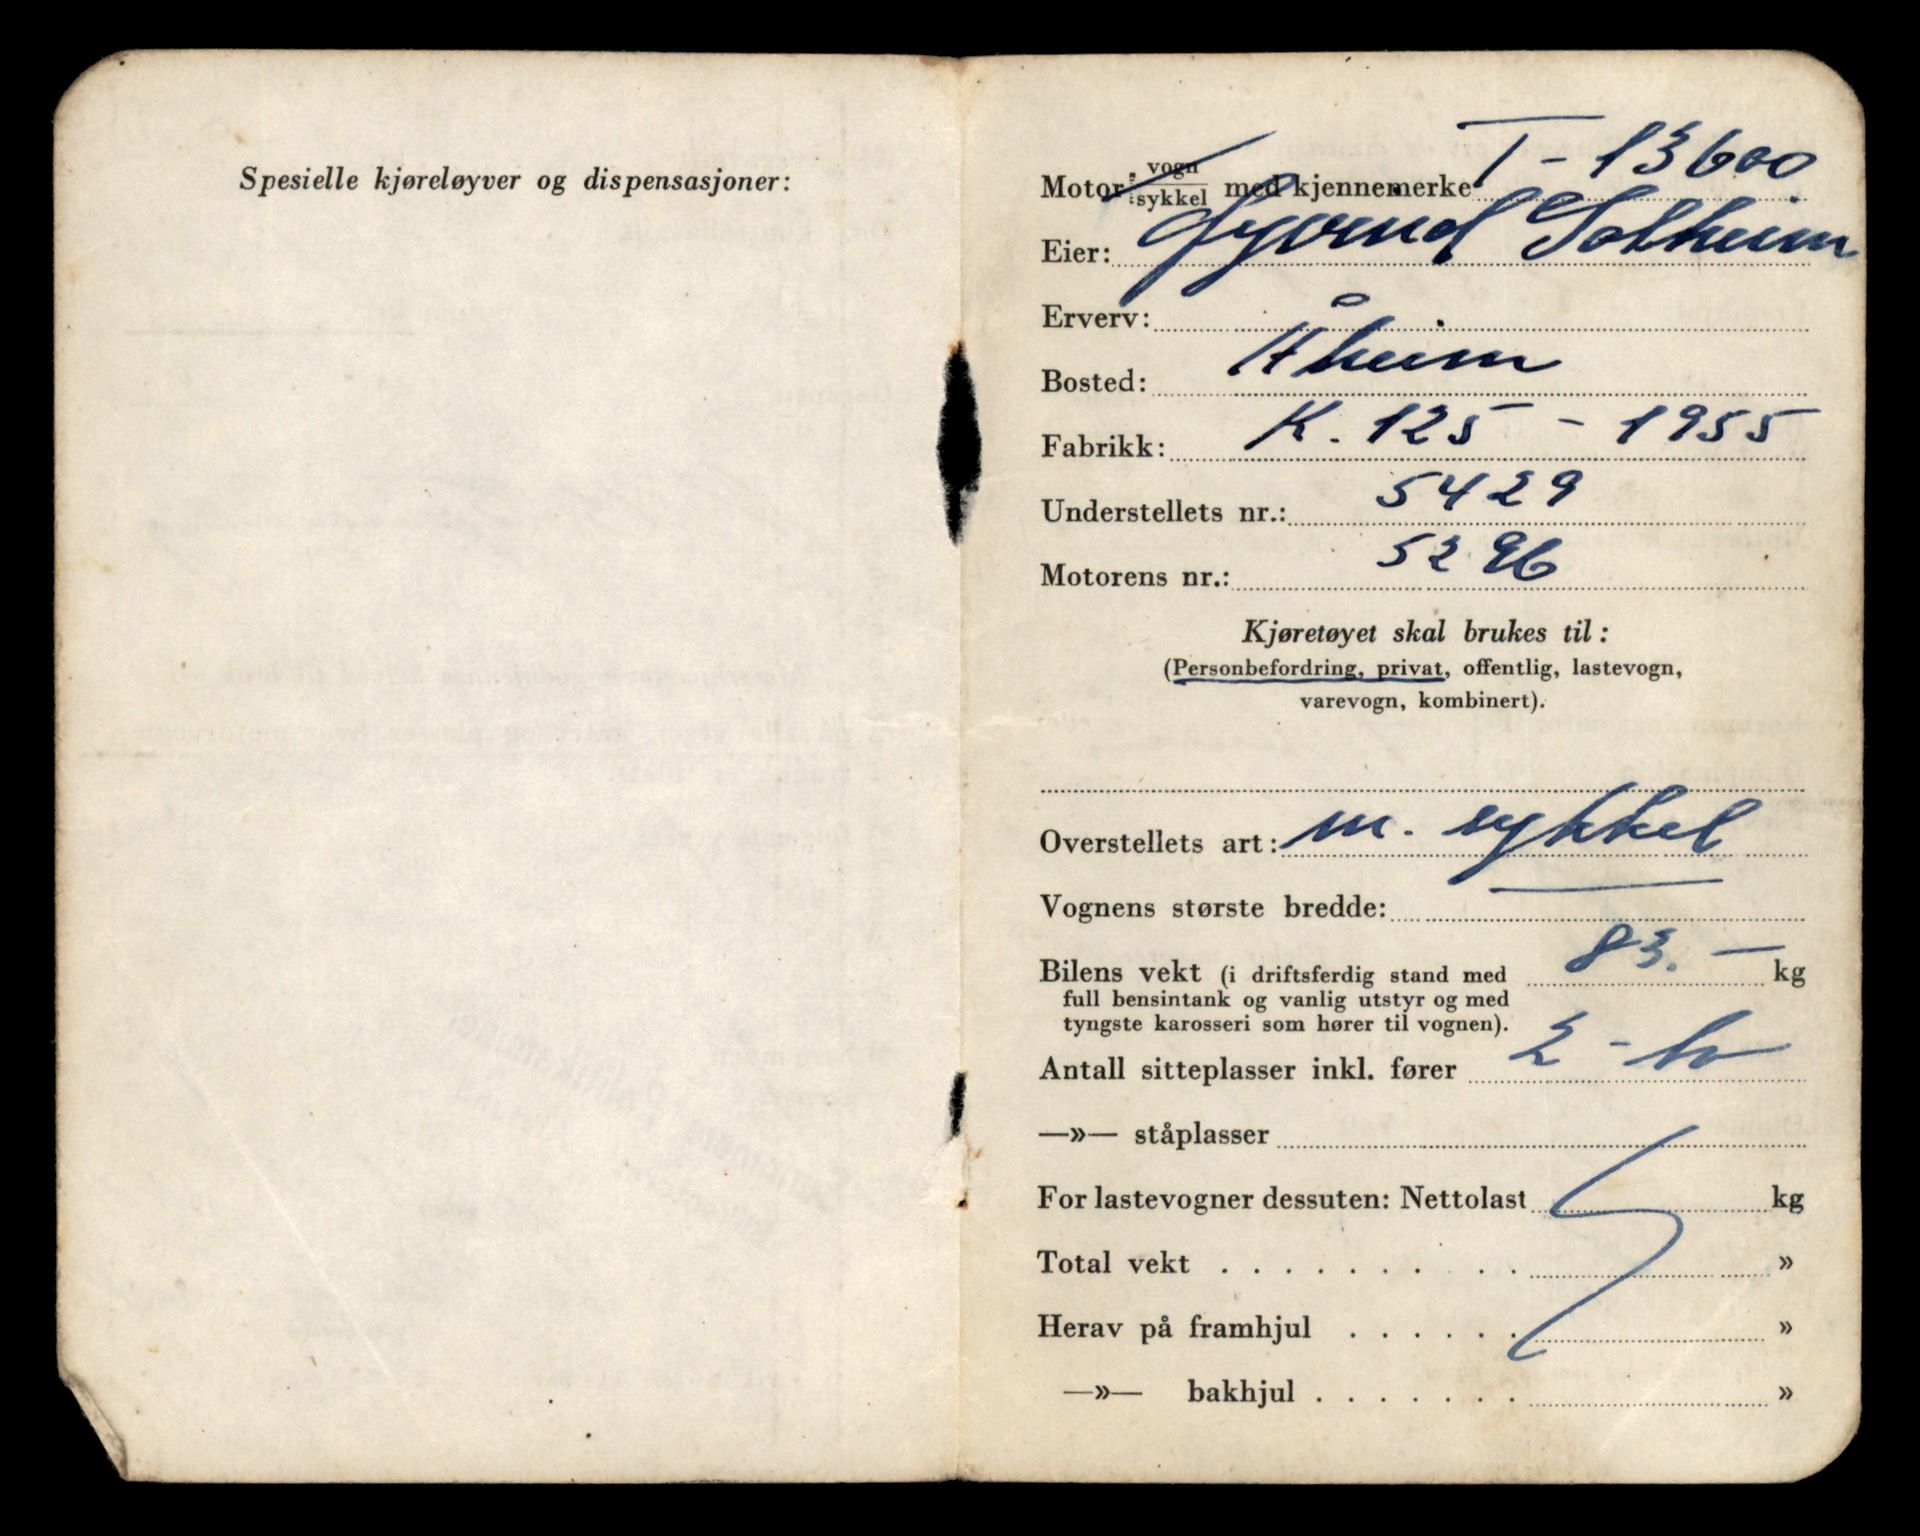 Spesielle kjøreløyver og dispensasjoner:
Motor: vogn / sykkel med kjennemerke T - 13600
Eier: Solheim
Erverv:
Bosted: Åheim
Fabrikk: K. 125 - 1955
Understellets nr.: 5429
Motorens nr.: 5296
Kjøretøyet skal brukes til:
(Personbefordring, privat, offentlig, lastevogn,
varevogn, kombinert).
Overstellets art: m. sykkel
Vognens største bredde: —
Bilens vekt (i driftsferdig stand med 83.- kg
full bensintank og vanlig utstyr og med
tyngste karosseri som hører til vognen).
Antall sitteplasser inkl. fører 2 - to
—»— ståplasser
For lastevogner dessuten: Nettolast kg
Total vekt . . . . . . . . . . »
Herav på framhjul . . . . . . »
—»— bakhjul . . . . . . . »